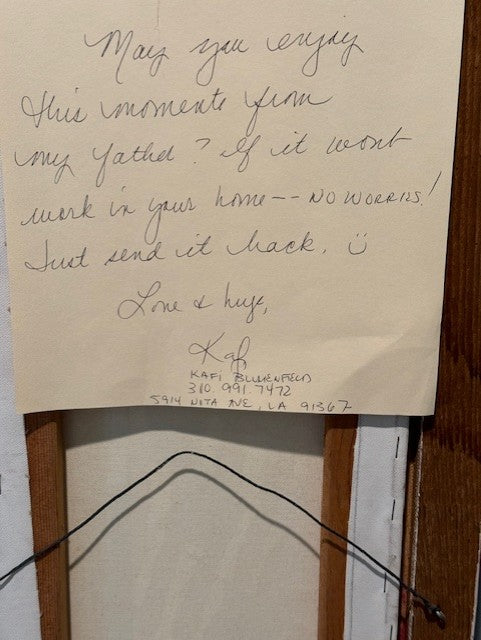 May you enjoy
this moments from
my father? If it wont
work in your home -- NO WORRIES!
Just send it back. ☺
Love & hugs,
Kafi
KAFI BLUMENFIELD
310 991 7472
5914 NITA AVE, LA 91367